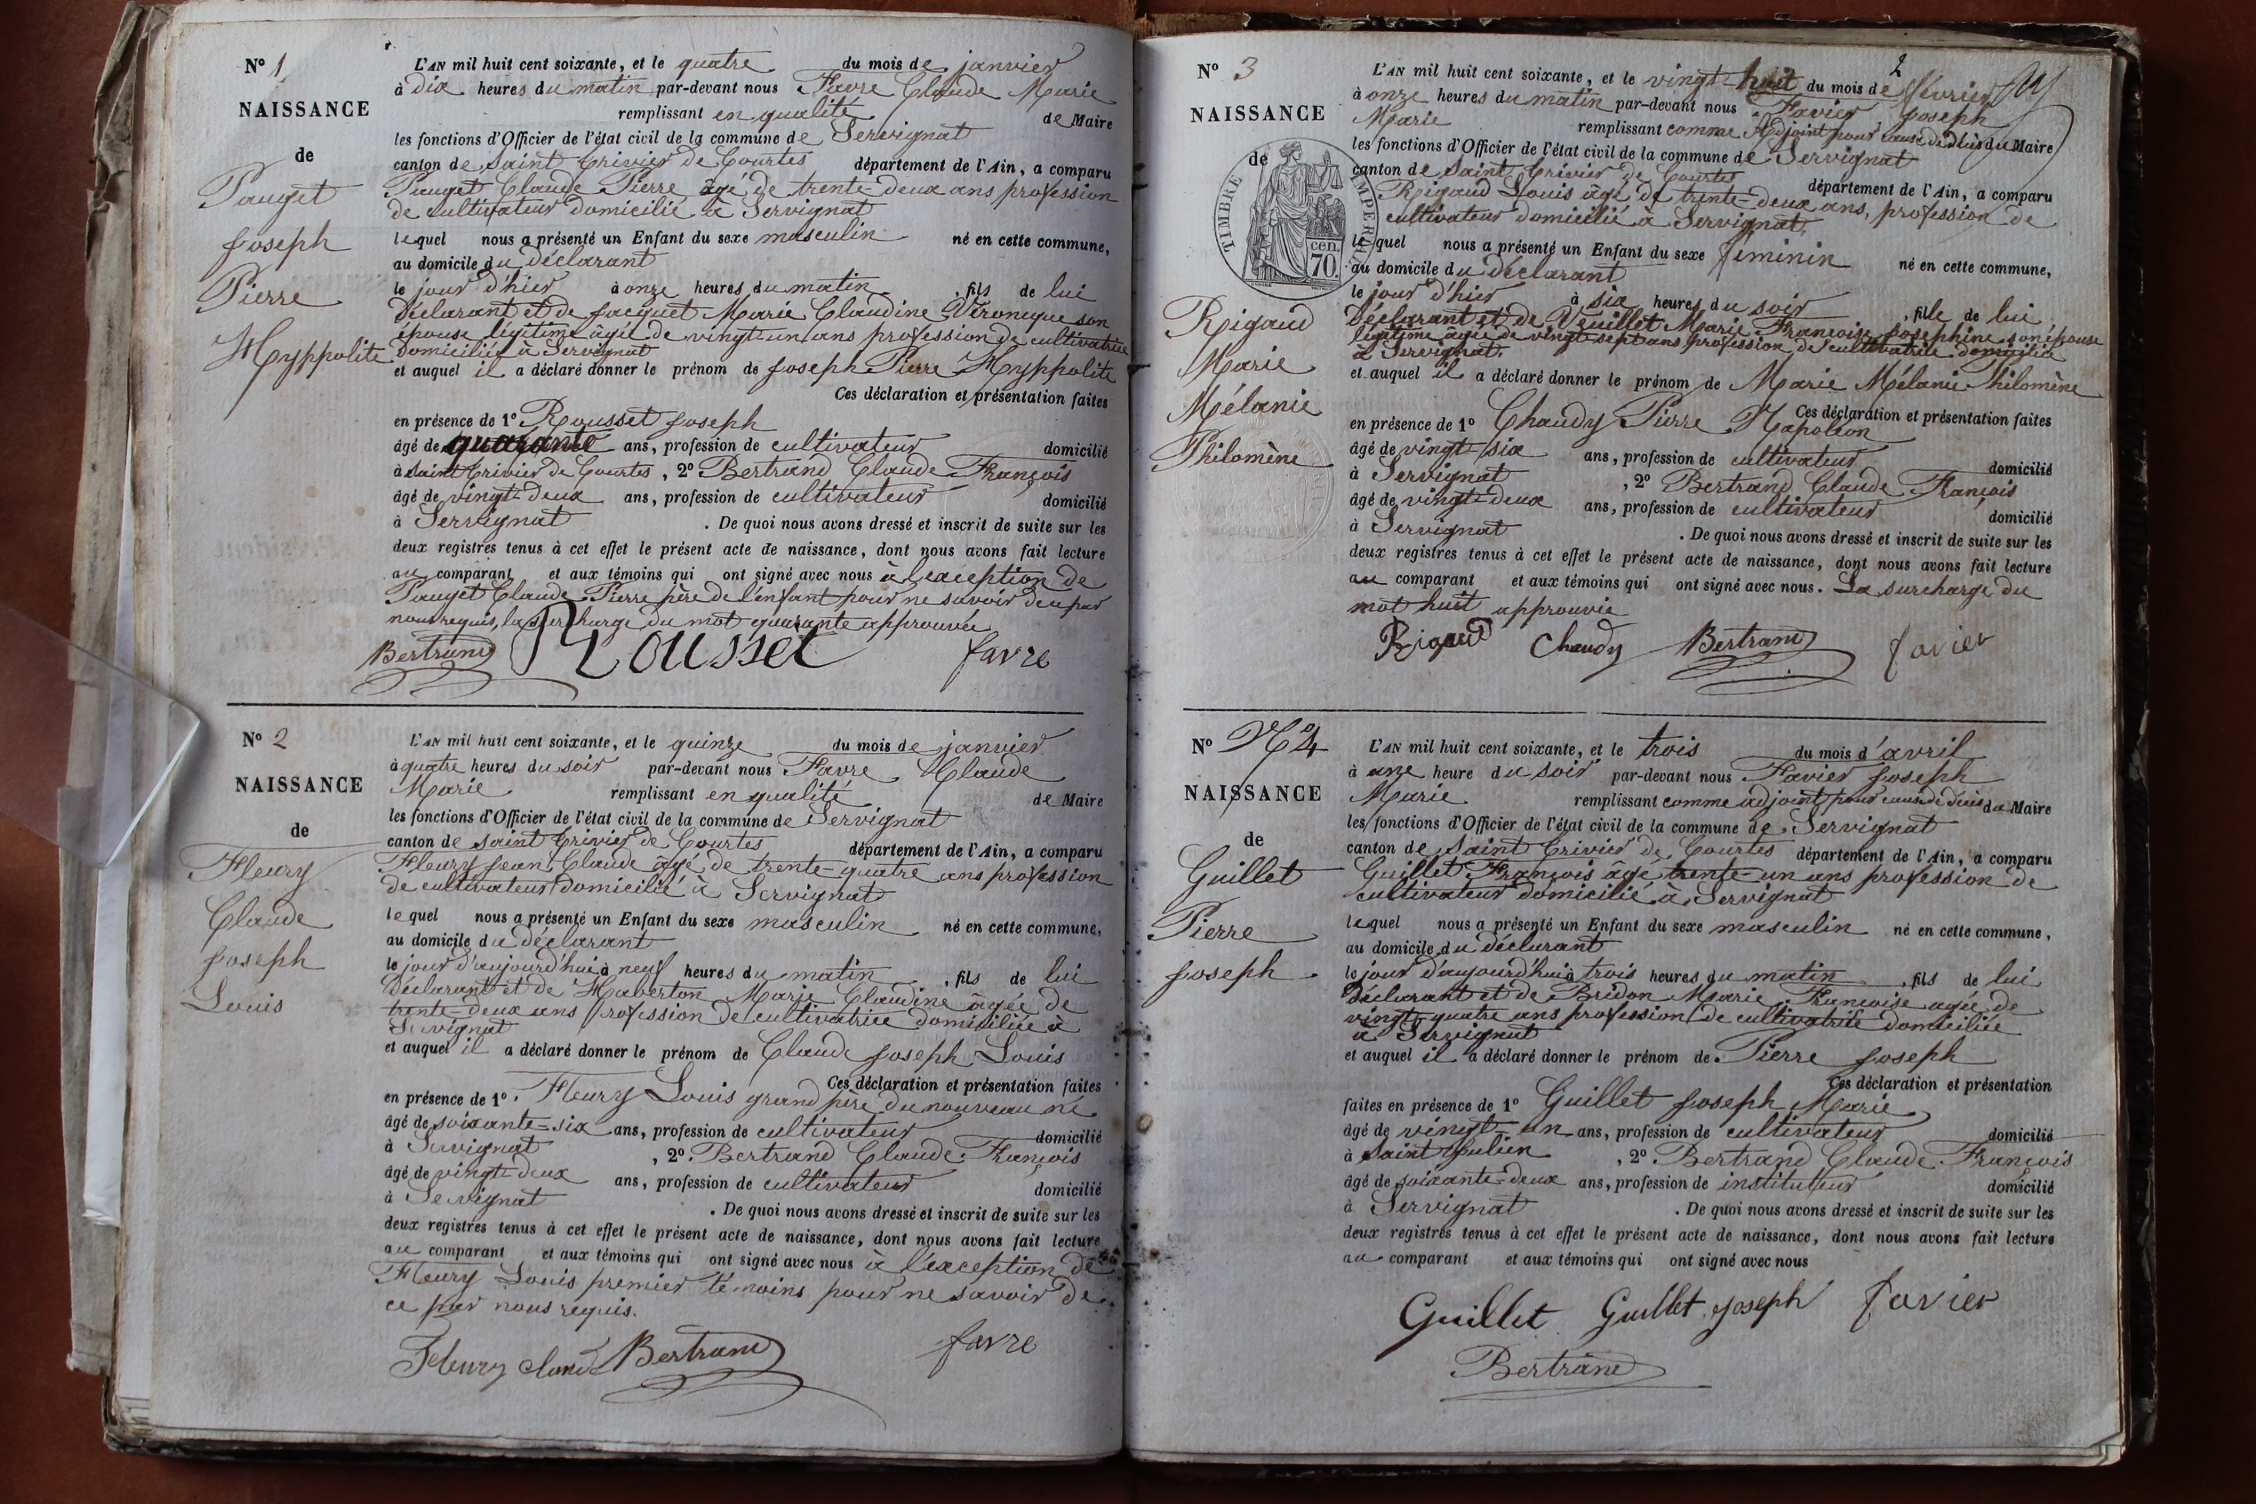 N° 1
NAISSANCE
de
Pauget
Joseph
Pierre
Hyppolite
L'AN mil huit cent soixante, et le quatre du mois de janvier
à dix heures du matin par-devant nous Favre Claude Marie
remplissant en qualité de Maire
les fonctions d'Officier de l'état civil de la commune de Servignat
canton de Saint Trivier de Courtes département de l'Ain, a comparu
Pauget Claude Pierre âgé de trente-deux ans profession
de cultivateur domicilié à Servignat
lequel nous a présenté un Enfant du sexe masculin né en cette commune,
au domicile du déclarant
le jour d'hier à onze heures du matin, fils de lui
Déclarant et de Jacquet Marie Claudine Véronique son
épouse légitime âgée de vingt-un ans profession de cultivatrice
domiciliée à Servignat
et auquel il a déclaré donner le prénom de Joseph Pierre Hyppolite
Ces déclaration et présentation faites
en présence de 1° Rousset Joseph
âgé de quarante ans, profession de cultivateur domicilié
à Saint Trivier de Courtes, 2° Bertrand Claude François
âgé de vingt-deux ans, profession de cultivateur domicilié
à Servignat. De quoi nous avons dressé et inscrit de suite sur les
deux registres tenus à cet effet le présent acte de naissance, dont nous avons fait lecture
au comparant et aux témoins qui ont signé avec nous à l'exception de
Pauget Claude Pierre père de l'enfant pour ne savoir de ce par
nous requis, la surcharge du mot quarante approuvée
Bertrand Rousset favre
N° 2
NAISSANCE
de
Fleury
Claude
Joseph
Louis
L'AN mil huit cent soixante, et le quinze du mois de janvier
à quatre heures du soir par-devant nous Favre Claude
Marie remplissant en qualité de Maire
les fonctions d'Officier de l'état civil de la commune de Servignat
canton de Saint Trivier de Courtes département de l'Ain, a comparu
Fleury Jean Claude âgé de trente-quatre ans profession
de cultivateur domicilié à Servignat
lequel nous a présenté un Enfant du sexe masculin né en cette commune,
au domicile du déclarant
le jour d'aujourd'hui à neuf heures du matin, fils de lui
Déclarant et de Haberton Marie Claudine âgée de
trente-deux ans profession de cultivatrice domiciliée à
Servignat
et auquel il a déclaré donner le prénom de Claude Joseph Louis
Ces déclaration et présentation faites
en présence de 1°. Fleury Louis grand père du nouveau né
âgé de soixante-six ans, profession de cultivateur domicilié
à Servignat, 2°. Bertrand Claude François
âgé de vingt-deux ans, profession de cultivateur domicilié
à Servignat. De quoi nous avons dressé et inscrit de suite sur les
deux registres tenus à cet effet le présent acte de naissance, dont nous avons fait lecture
au comparant et aux témoins qui ont signé avec nous à l'exception de
Fleury Louis premier témoins pour ne savoir de
ce par nous requis.
Fleury claude Bertrand favre
2
N° 3
NAISSANCE
de
TIMBRE IMPERIAL
cen.
70.
Rigaud
Marie
Mélanie
Philomène
L'AN mil huit cent soixante, et le vingt-huit du mois de février
à onze heures du matin par-devant nous Favier Joseph
Marie remplissant comme Adjoint pour cause de décès du Maire
les fonctions d'Officier de l'état civil de la commune de Servignat
canton de Saint Trivier de Courtes département de l'Ain, a comparu
Rigaud Louis âgé de trente-deux ans, profession de
cultivateur domicilié à Servignat,
lequel nous a présenté un Enfant du sexe féminin né en cette commune,
au domicile du déclarant
le jour d'hier à six heures du soir, fille de lui
Déclarant et de Veuillet Marie Françoise Josephine son épouse
légitime âgée de vingt-sept ans profession de cultivatrice domicilié
à Servignat,
et auquel il a déclaré donner le prénom de Marie Mélanie Philomène
Ces déclaration et présentation faites
en présence de 1° Chaudy Pierre Napoléon
âgé de vingt-six ans, profession de cultivateur domicilié
à Servignat, 2° Bertrand Claude François
âgé de vingt-deux ans, profession de cultivateur domicilié
à Servignat. De quoi nous avons dressé et inscrit de suite sur les
deux registres tenus à cet effet le présent acte de naissance, dont nous avons fait lecture
au comparant et aux témoins qui ont signé avec nous. La surcharge du
mot huit approuvée
Rigaud Chaudy Bertrand favier
N° N° 4
NAISSANCE
de
Guillet
Pierre
Joseph
L'AN mil huit cent soixante, et le trois du mois d'avril
à une heure du soir par-devant nous Favier Joseph
Marie remplissant comme adjoint pour cause de décès du Maire
les fonctions d'Officier de l'état civil de la commune de Servignat
canton de Saint Trivier de Courtes département de l'Ain, a comparu
Guillet François âgé trente-un ans profession de
cultivateur domicilié à Servignat
lequel nous a présenté un Enfant du sexe masculin né en cette commune,
au domicile du déclarant
le jour d'aujourd'hui à trois heures du matin, fils de lui
Déclarant et de Bridon Marie Françoise agée de
vingt-quatre ans profession de cultivatrice domiciliée
à Servignat
et auquel il a déclaré donner le prénom de. Pierre Joseph
Ces déclaration et présentation
faites en présence de 1° Guillet Joseph Marie
âgé de vingt-un ans, profession de cultivateur domicilié
à Saint Julien, 2°. Bertrand Claude François
âgé de soixante-deux ans, profession de instituteur domicilié
à Servignat. De quoi nous avons dressé et inscrit de suite sur les
deux registres tenus à cet effet le présent acte de naissance, dont nous avons fait lecture
au comparant et aux témoins qui ont signé avec nous
Guillet Guillet joseph favier
Bertrand